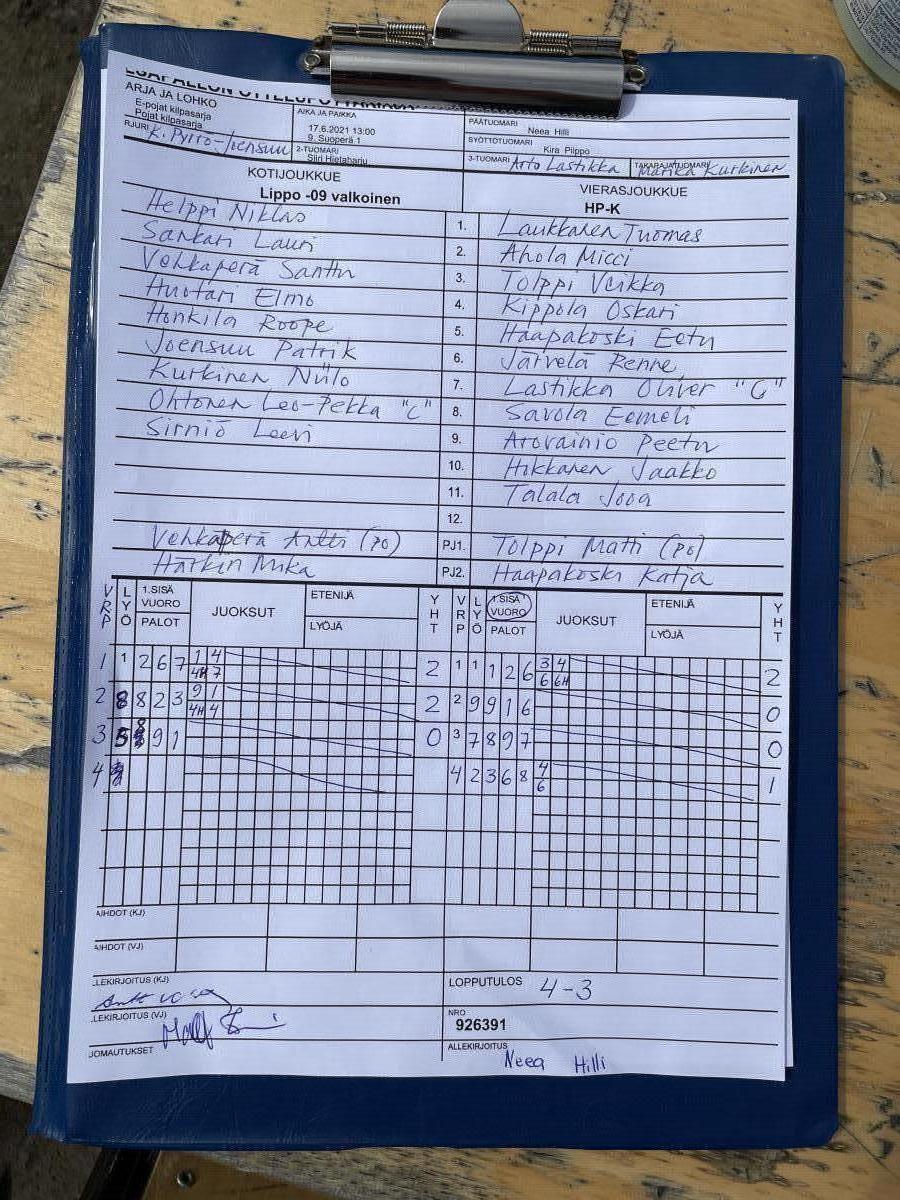 ARJA JA LOHKO
E-pojat kilpasarja
Pojat kilpasarja
AIKA JA PAIKKA
17.6.2021 13:00
9. Suoperä 1
PÄÄTUOMARI
Neea Hilli
SYÖTTÖTUOMARI
Kira Piippo
RJURI K. Pyrrö-Joensuu
2-TUOMARI
Siiri Hietaharju
3-TUOMARI Arto Lastikka
TAKARAJATUOMARI Marika Kurkinen
KOTIJOUKKUE
Lippo -09 valkoinen
VIERASJOUKKUE
HP-K
Helppi Niklas 1. Laukkanen Tuomas
Sankari Lauri 2. Ahola Micci
Vehkaperä Santtu 3. Tolppi Veikka
Huotari Elmo 4. Kippola Oskari
Honkila Roope 5. Haapakoski Eetu
Joensuu Patrik 6. Järvelä Renne
Kurkinen Niilo 7. Lastikka Oliver "C"
Ohtonen Leo-Pekka "C" 8. Savola Eemeli
Sirniö Leevi 9. Arovainio Peetu
10. Hikkanen Jaakko
11. Talala Jooa
12.
Vehkaperä Antti (po) PJ1. Tolppi Matti (po)
Härkin Mika PJ2. Haapakoski Katja
VRP LYÖ 1.SISÄ VUORO PALOT JUOKSUT ETENIJÄ LYÖJÄ YHT VRP LYÖ 1.SISÄ VUORO PALOT JUOKSUT ETENIJÄ LYÖJÄ YHT
1 1 2 6 7 1 4 2 1 1 1 2 6 3 4 2
4H 7 6 6H
2 8 8 2 3 9 1 2 2 9 9 1 6 0
4H 4
3 5 8 9 1 0 3 7 8 9 7 0
4 4 2 3 6 8 4 1
6
AIHDOT (KJ)
AIHDOT (VJ)
LLEKIRJOITUS (KJ)
LOPPUTULOS 4-3
LLEKIRJOITUS (VJ)
NRO
926391
UOMAUTUKSET
ALLEKIRJOITUS
Neea Hilli